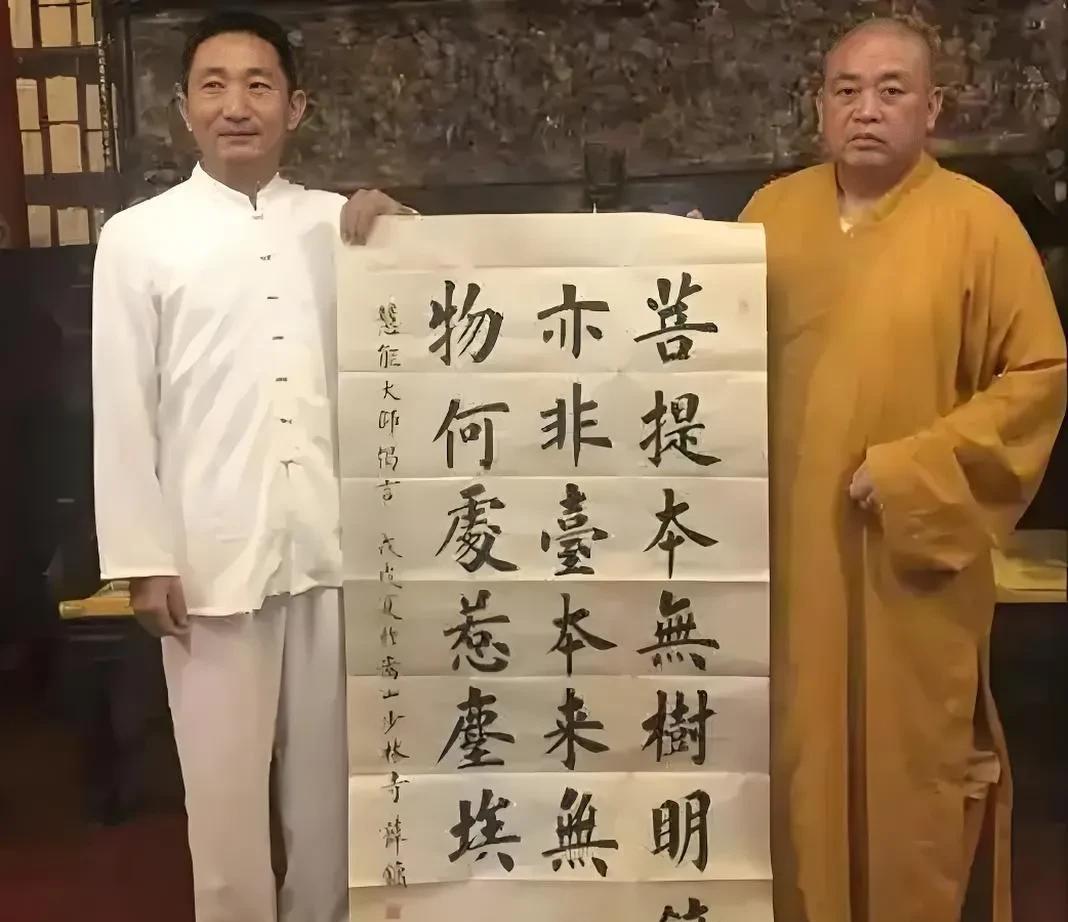 菩提本無樹明
亦非臺本来無
物何處惹塵埃
慧能大師偈言 夏於嵩山少林寺 薛